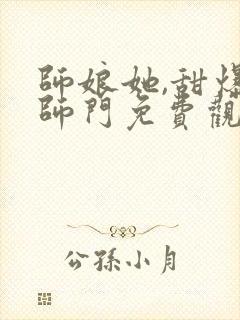 師娘她,甜爆
師門免費觀
公孫小月